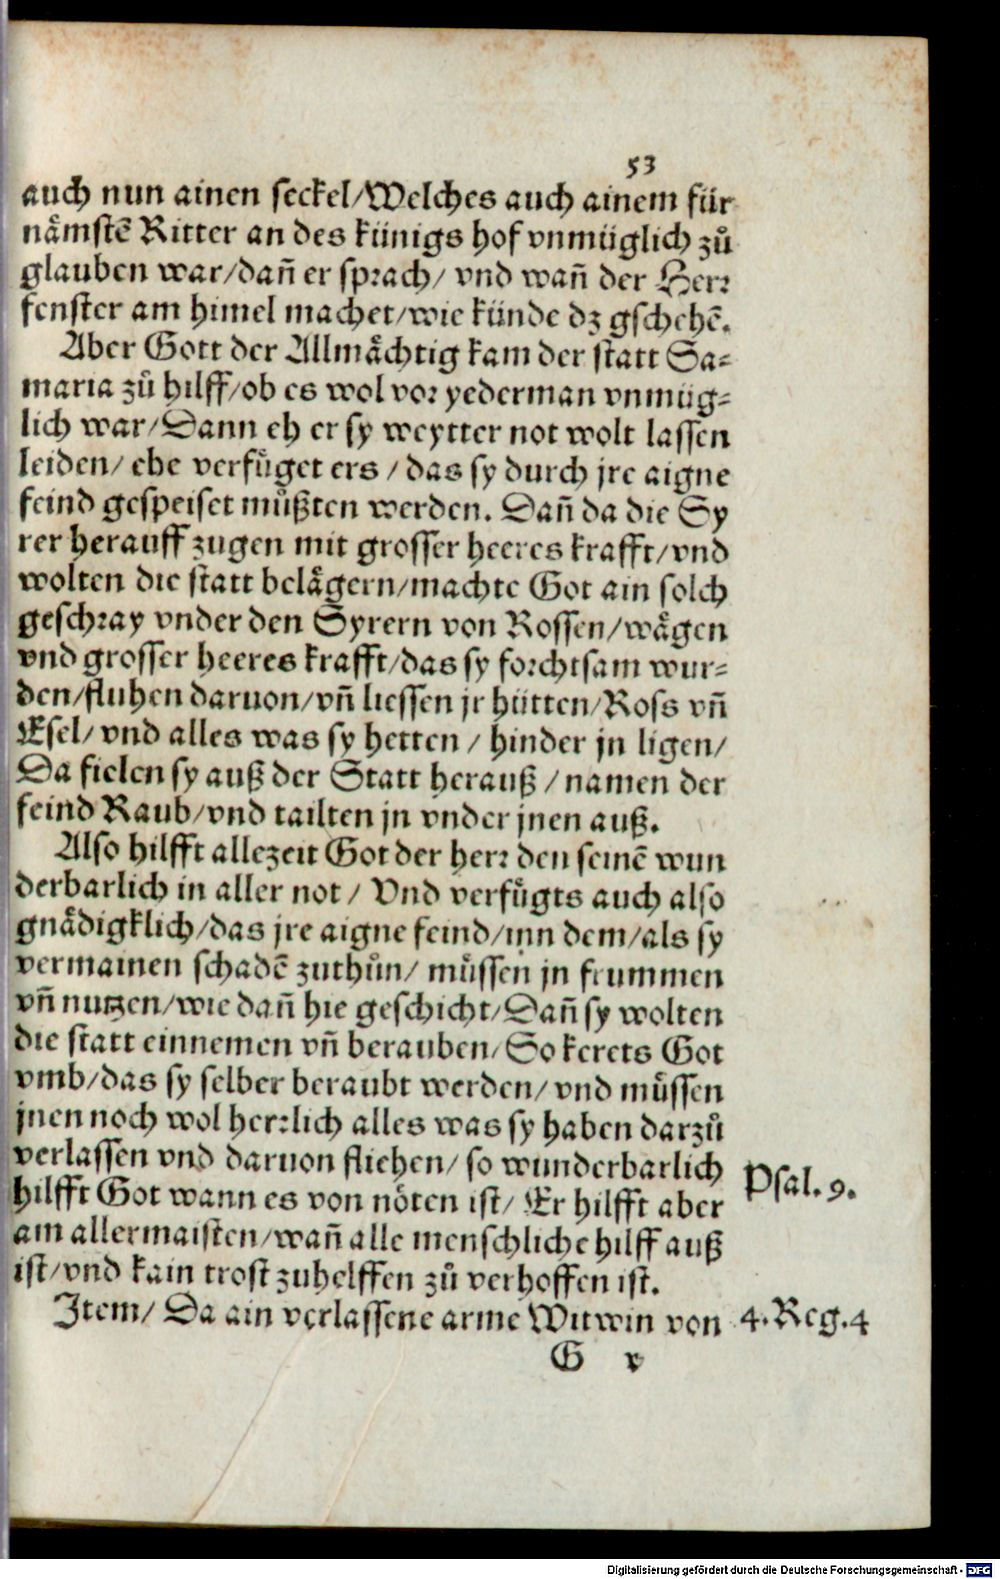 53
auch nun ainen seckel/Welches auch ainem für
nämstē Ritter an des künigs hof vnmüglich zů
glauben war/dañ er sprach/ vnd wañ der Herr
fenster am himel machet/wie künde dz gschehē.
Aber Gott der Allmächtig kam der statt Sa-
maria zů hilff/ob es wol vor yederman vnmüg-
lich war/Dann eh er sy weytter not wolt lassen
leiden/ ehe verfůget ers / das sy durch jre aigne
feind gespeiset můßten werden. Dañ da die Sy
rer herauff zugen mit grosser heeres krafft/vnd
wolten die statt belägern/machte Got ain solch
geschray vnder den Syrern von Rossen/wägen
vnd grosser heeres krafft/das sy forchtsam wur-
den/fluhen daruon/vñ liessen jr hütten/Ross vñ
Esel/ vnd alles was sy hetten / hinder jn ligen/
Da fielen sy auß der Statt herauß / namen der
feind Raub/vnd tailten jn vnder jnen auß.
Also hilfft allezeit Got der herr den seinē wun
derbarlich in aller not / Vnd verfůgts auch also
gnädigklich/das jre aigne feind/inn dem/als sy
vermainen schadē zuthůn/ můssen jn frummen
vñ nutzen/wie dañ hie geschicht/Dañ sy wolten
die statt einnemen vñ berauben/ So kerets Got
vmb/das sy selber beraubt werden/ vnd můssen
jnen noch wol herrlich alles was sy haben darzů
verlassen vnd daruon fliehen/ so wunderbarlich
hilfft Got wann es von nöten ist/ Er hilfft aber
am allermaisten/wañ alle menschliche hilff auß
ist/vnd kain trost zuhelffen zů verhoffen ist.
Psal. 9.
Item/ Da ain verlassene arme Witwin von
4. Reg. 4
G v
Digitalisierung gefördert durch die Deutsche Forschungsgemeinschaft - DFG